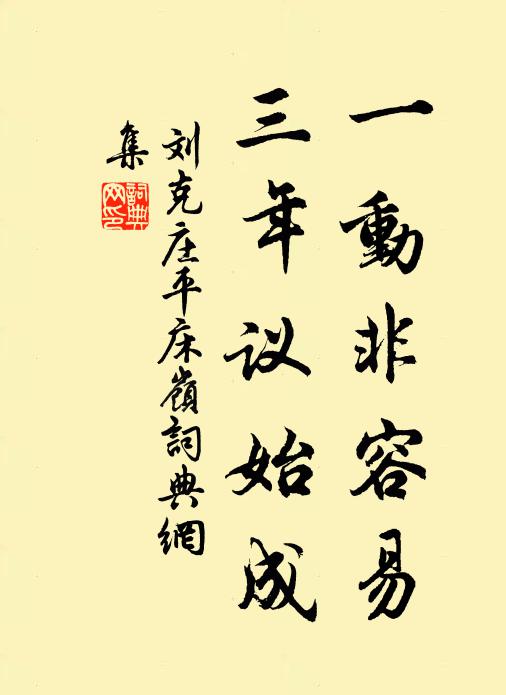 一動非容易
三年议始成
刘克庄平床嶺詞典網
集
詞典网印